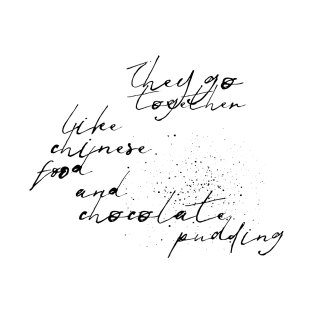 They go
together
like
chinese
food
and
chocolate
pudding